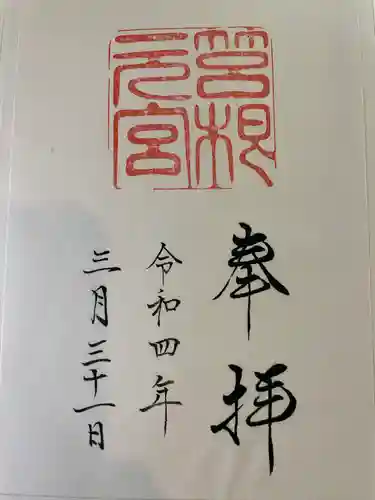 筥根
元宮
奉拝
令和四年
三月三十一日